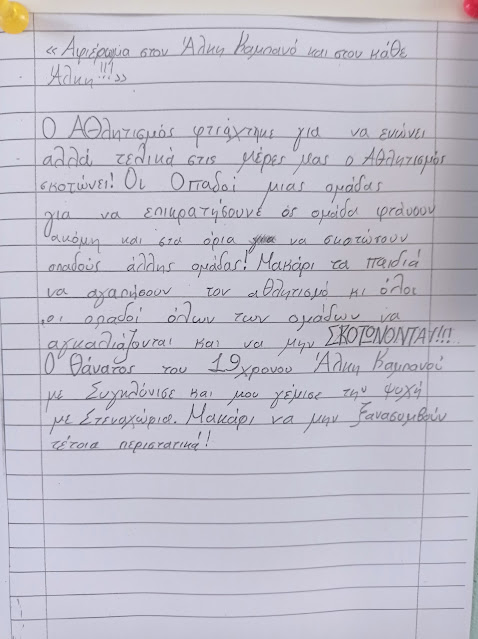 « Αφιέρωμα στον Άλκη Καμπανό και στον κάθε
Άλκη!!!»
Ο ΑΘλητισμός φτιάχτηκε για να ενώνει
αλλά τελικά στις μέρες μας ο ΑΘλητισμός
σκοτώνει! Οι Οπαδοί μιας ομάδας
για να επικρατήσουνε ος ομάδα φτάνουν
ακόμη και στα όρια να σκοτώσουν
οπαδούς άλλης ομάδας! Μακάρι τα παιδιά
να αγαπήσουν τον αθλητισμό κι όλοι
οι οπαδοί όλων των ομάδων να
αγκαλιάζονται και να μην ΣΚΟΤΩΝΟΝΤΑΙ!!!
Ο Θάνατος του 19χρονου Άλκη Καμπανού
με Συγκλόνισε και μου γέμισε την ψυχή
με Στεναχώρια. Μακάρι να μην ξανασυμβούν
τέτοια περιστατικά!